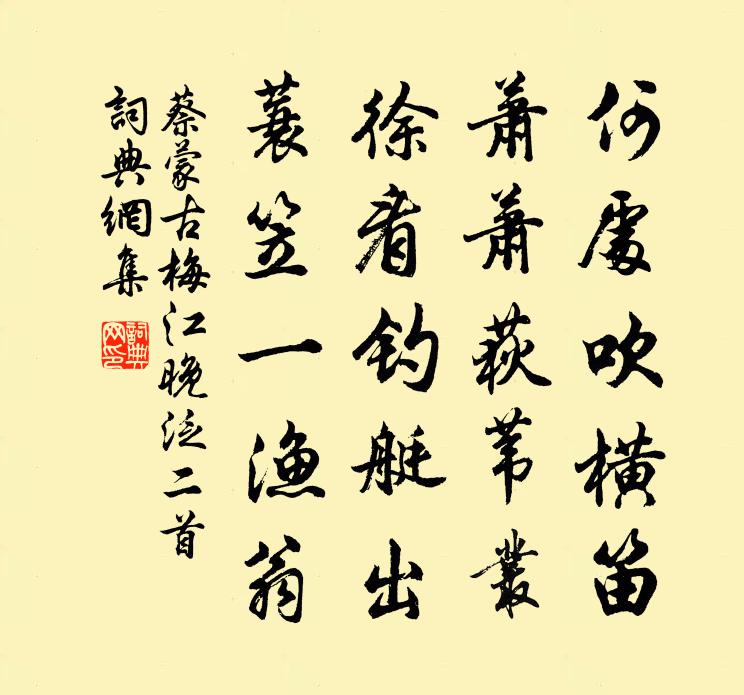 何處吹橫笛
蕭蕭荻葦叢
徐看釣艇出
蓑笠一漁翁
蔡蒙古梅江晚泛二首
詞典網集
詞典
网印